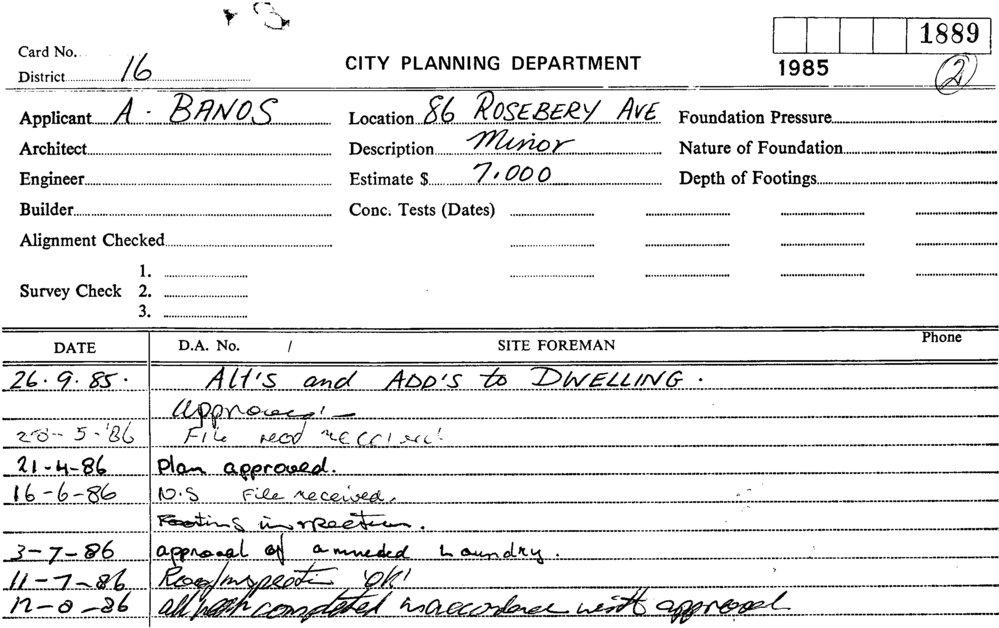 1889
Card No.
1985
District 16
CITY PLANNING DEPARTMENT
2
Applicant A. BANOS
Location 86 ROSEBERY AVE
Foundation Pressure
Architect
Description Minor
Nature of Foundation
Engineer
Estimate $ 7,000
Depth of Footings
Builder
Conc. Tests (Dates)
Alignment Checked
Survey Check
1.
2.
3.
DATE
D.A. No. /
SITE FOREMAN
Phone
26.9.85. Alt's and ADD'S to DWELLING.
Approved
-5-86 File
21-4-86 Plan approved.
16-6-86 File received.
Footing inspection.
3-7-86 approval of amneded Laundry.
11-7-86 inspection 'OK'
-86 all completed in accordance with approval